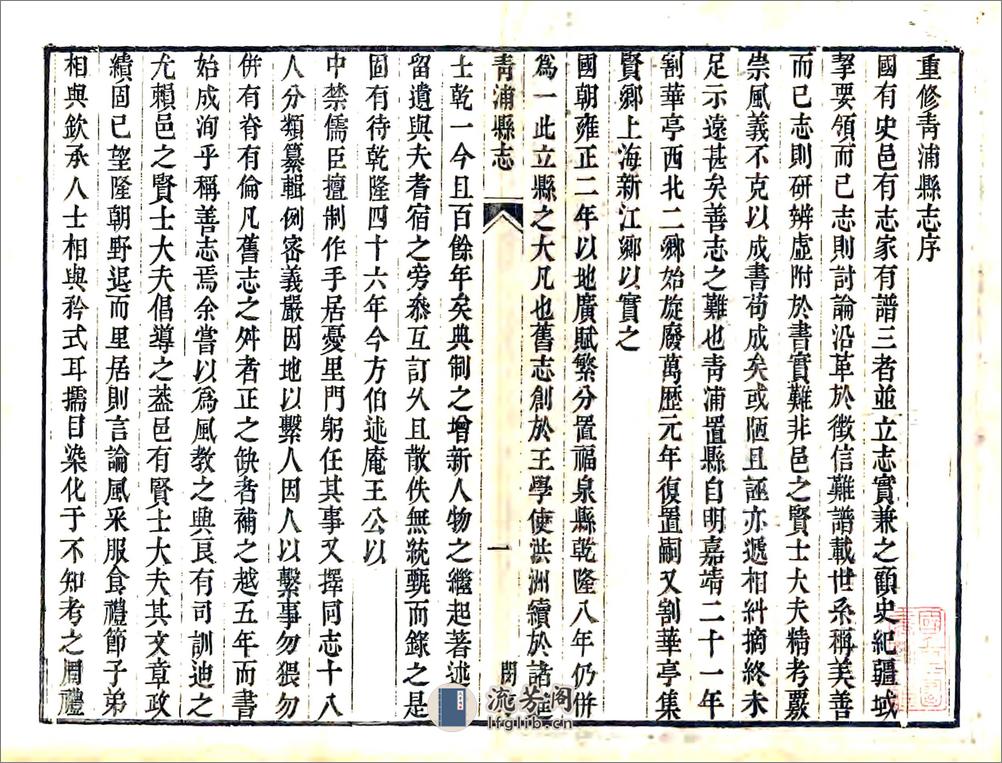 重修青浦縣志序
國有史邑有志家有譜三者並立志實兼之顧史紀疆域
挈要領而已志則討論沿革於徵信難譜載世系稱美善
而已志則研辨虛附於書實難非邑之賢士大夫精考覈
崇風義不克以成書苟成矣或陋且誣亦遞相糾摘終未
足示遠甚矣善志之難也青浦置縣自明嘉靖二十一年
割華亭西北二鄉始旋廢萬歷元年復置嗣又割華亭集
賢鄉上海新江鄉以實之
國朝雍正二年以地廣賦繁分置福泉縣乾隆八年仍併
為一此立縣之大凡也舊志創於王學使洪洲續於諸進
青浦縣志
一
士乾一今且百餘年矣典制之增新人物之繼起著述之
留遺與夫耆宿之旁叅互訂久且散佚無統甄而錄之是
固有待乾隆四十六年今方伯述庵王公以
中禁儒臣擅制作手居憂里門躬任其事又擇同志十八
人分類纂輯例密義嚴因地以繫人因人以繫事勿猥勿
併有脊有倫凡舊志之舛者正之缺者補之越五年而書
始成洵乎稱善志焉余嘗以為風教之興良有司訓迪之
尤賴邑之賢士大夫倡導之葢邑有賢士大夫其文章政
績固已望隆朝野退而里居則言論風采服食禮節子弟
相與欽承人士相與矜式耳擩目染化于不知考之周禮
流芳阁
lfglib.com